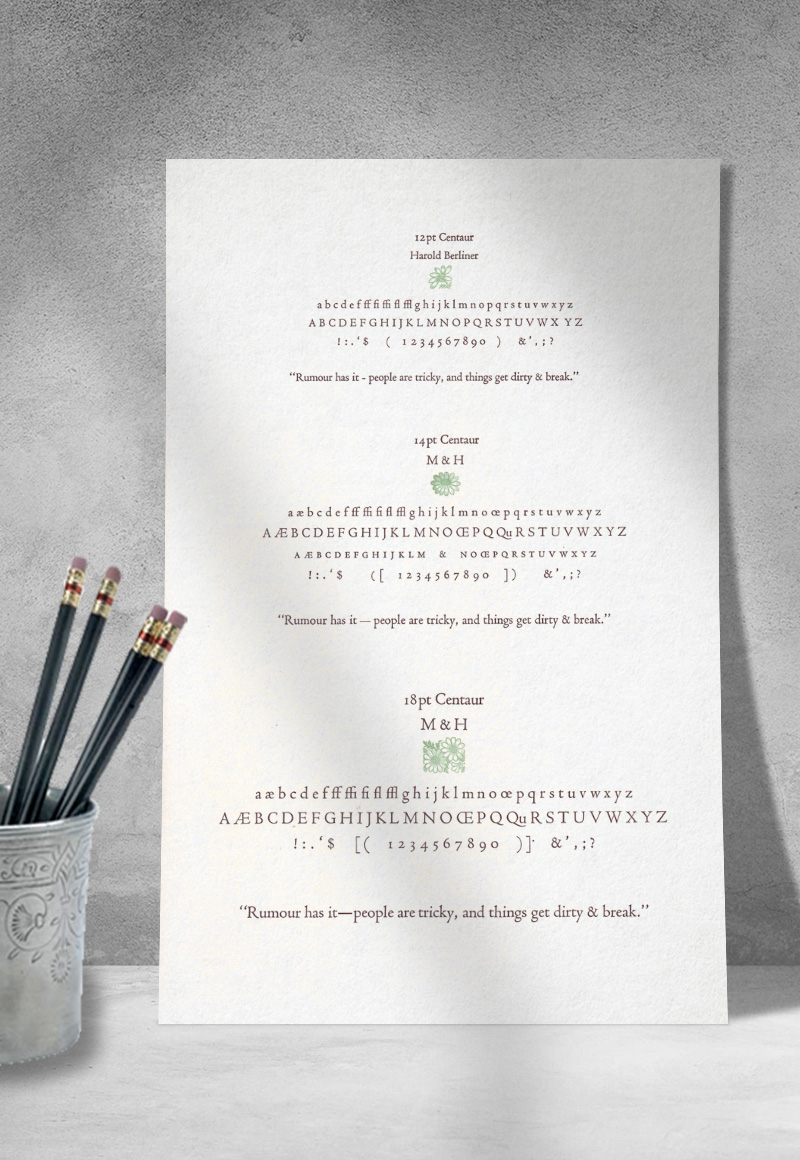 12pt Centaur
Harold Berliner
a b c d e f ff fi ffi fl ffl g h i j k l m n o p q r s t u v w x y z
A B C D E F G H I J K L M N O P Q R S T U V W X Y Z
! : . ‘ $ ( 1 2 3 4 5 6 7 8 9 0 ) & ’ , ; ?
“Rumour has it - people are tricky, and things get dirty & break.”
14pt Centaur
M & H
a æ b c d e f ff ffi fi fl ffl g h i j k l m n o œ p q r s t u v w x y z
A Æ B C D E F G H I J K L M N O Œ P Q Qu R S T U V W X Y Z
A Æ B C D E F G H I J K L M & N O Œ P Q R S T U V W X Y Z
! : . ‘ $ ( [ 1 2 3 4 5 6 7 8 9 0 ] ) & ’ , ; ?
“Rumour has it — people are tricky, and things get dirty & break.”
18pt Centaur
M & H
a æ b c d e f ff ffi fi fl ffl g h i j k l m n o œ p q r s t u v w x y z
A Æ B C D E F G H I J K L M N O Œ P Q Qu R S T U V W X Y Z
! : . ‘ $ [ ( 1 2 3 4 5 6 7 8 9 0 ) ] & ’ , ; ?
“Rumour has it—people are tricky, and things get dirty & break.”